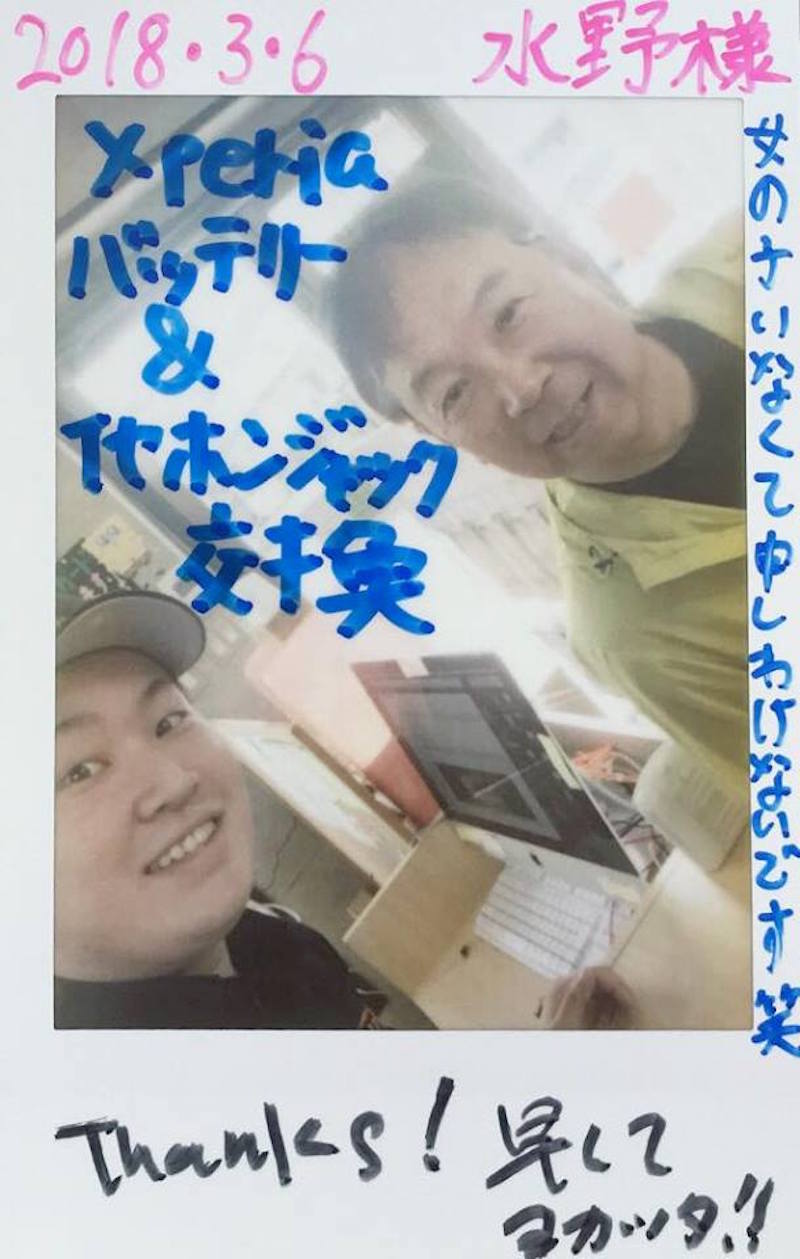 2018・3・6 水野様
Xperia
バッテリー
&
イヤホンジャック
交換
女の子いなくて申しわけないです笑
Thanks! 早くて
ヨカッタ!!